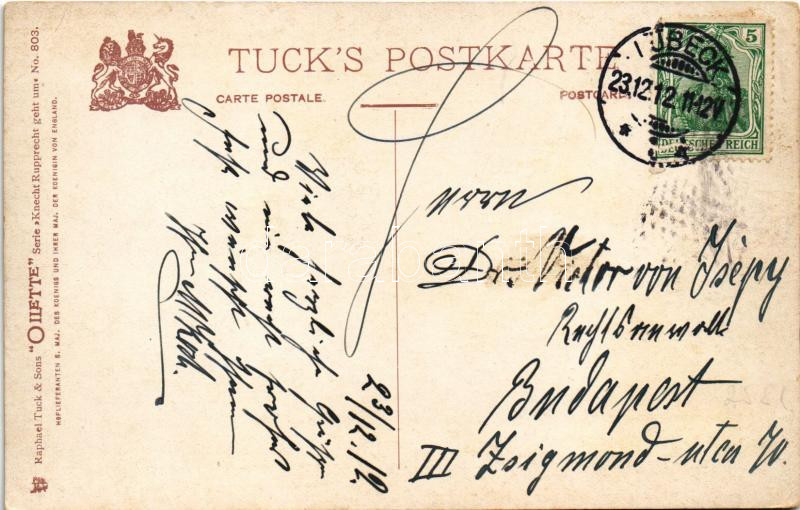 TUCK'S POSTKARTE
CARTE POSTALE.
POSTCARD
LÜBECK
23.12.12.11-12V
5
DEUTSCHES REICH
Raphael Tuck & Sons "OILETTE" Serie »Knecht Rupprecht geht um« No. 803.
HOFLIEFERANTEN S. MAJ. DES KOENIGS UND IHRER MAJ. DER KOENIGIN VON ENGLAND.
23/12.12.
Viele herzliche Grüße
und
wünscht Ihnen
Ihr
Herrn
Dr. Victor von Isépy
Rechtsanwalt
Budapest
III Zsigmond-utca 70.